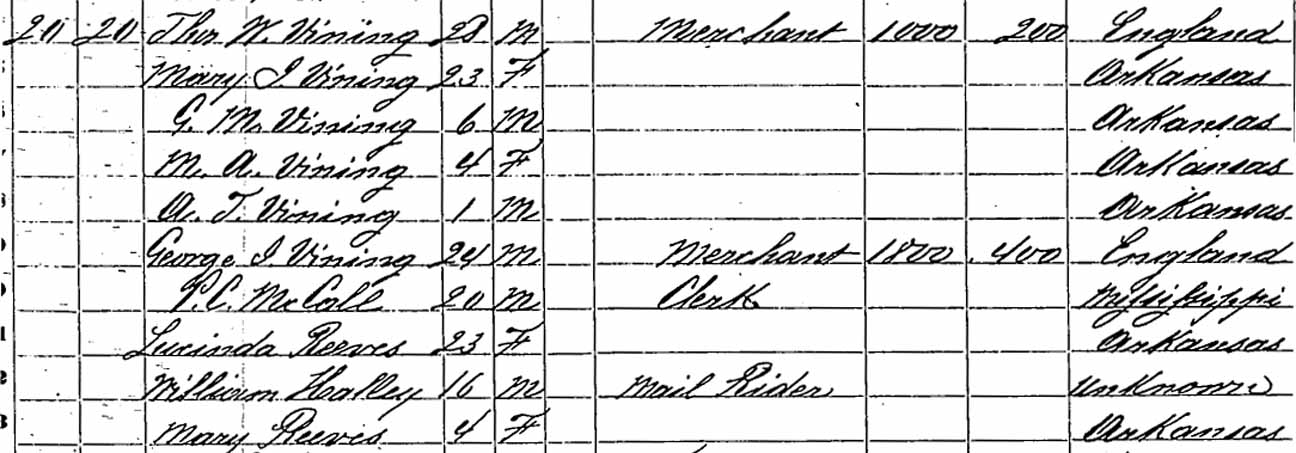 20 20 Thos W. Vining 28 M Merchant 1000 200 England
Mary J. Vining 23 F Arkansas
G. M. Vining 6 M Arkansas
M. A. Vining 4 F Arkansas
A. T. Vining 1 M Arkansas
George J. Vining 24 M Merchant 1800 400 England
P. C. McCall 20 M Clerk Mississippi
Lucinda Reeves 23 F Arkansas
William Halley 16 M Mail Rider Unknown
Mary Reeves 4 F Arkansas